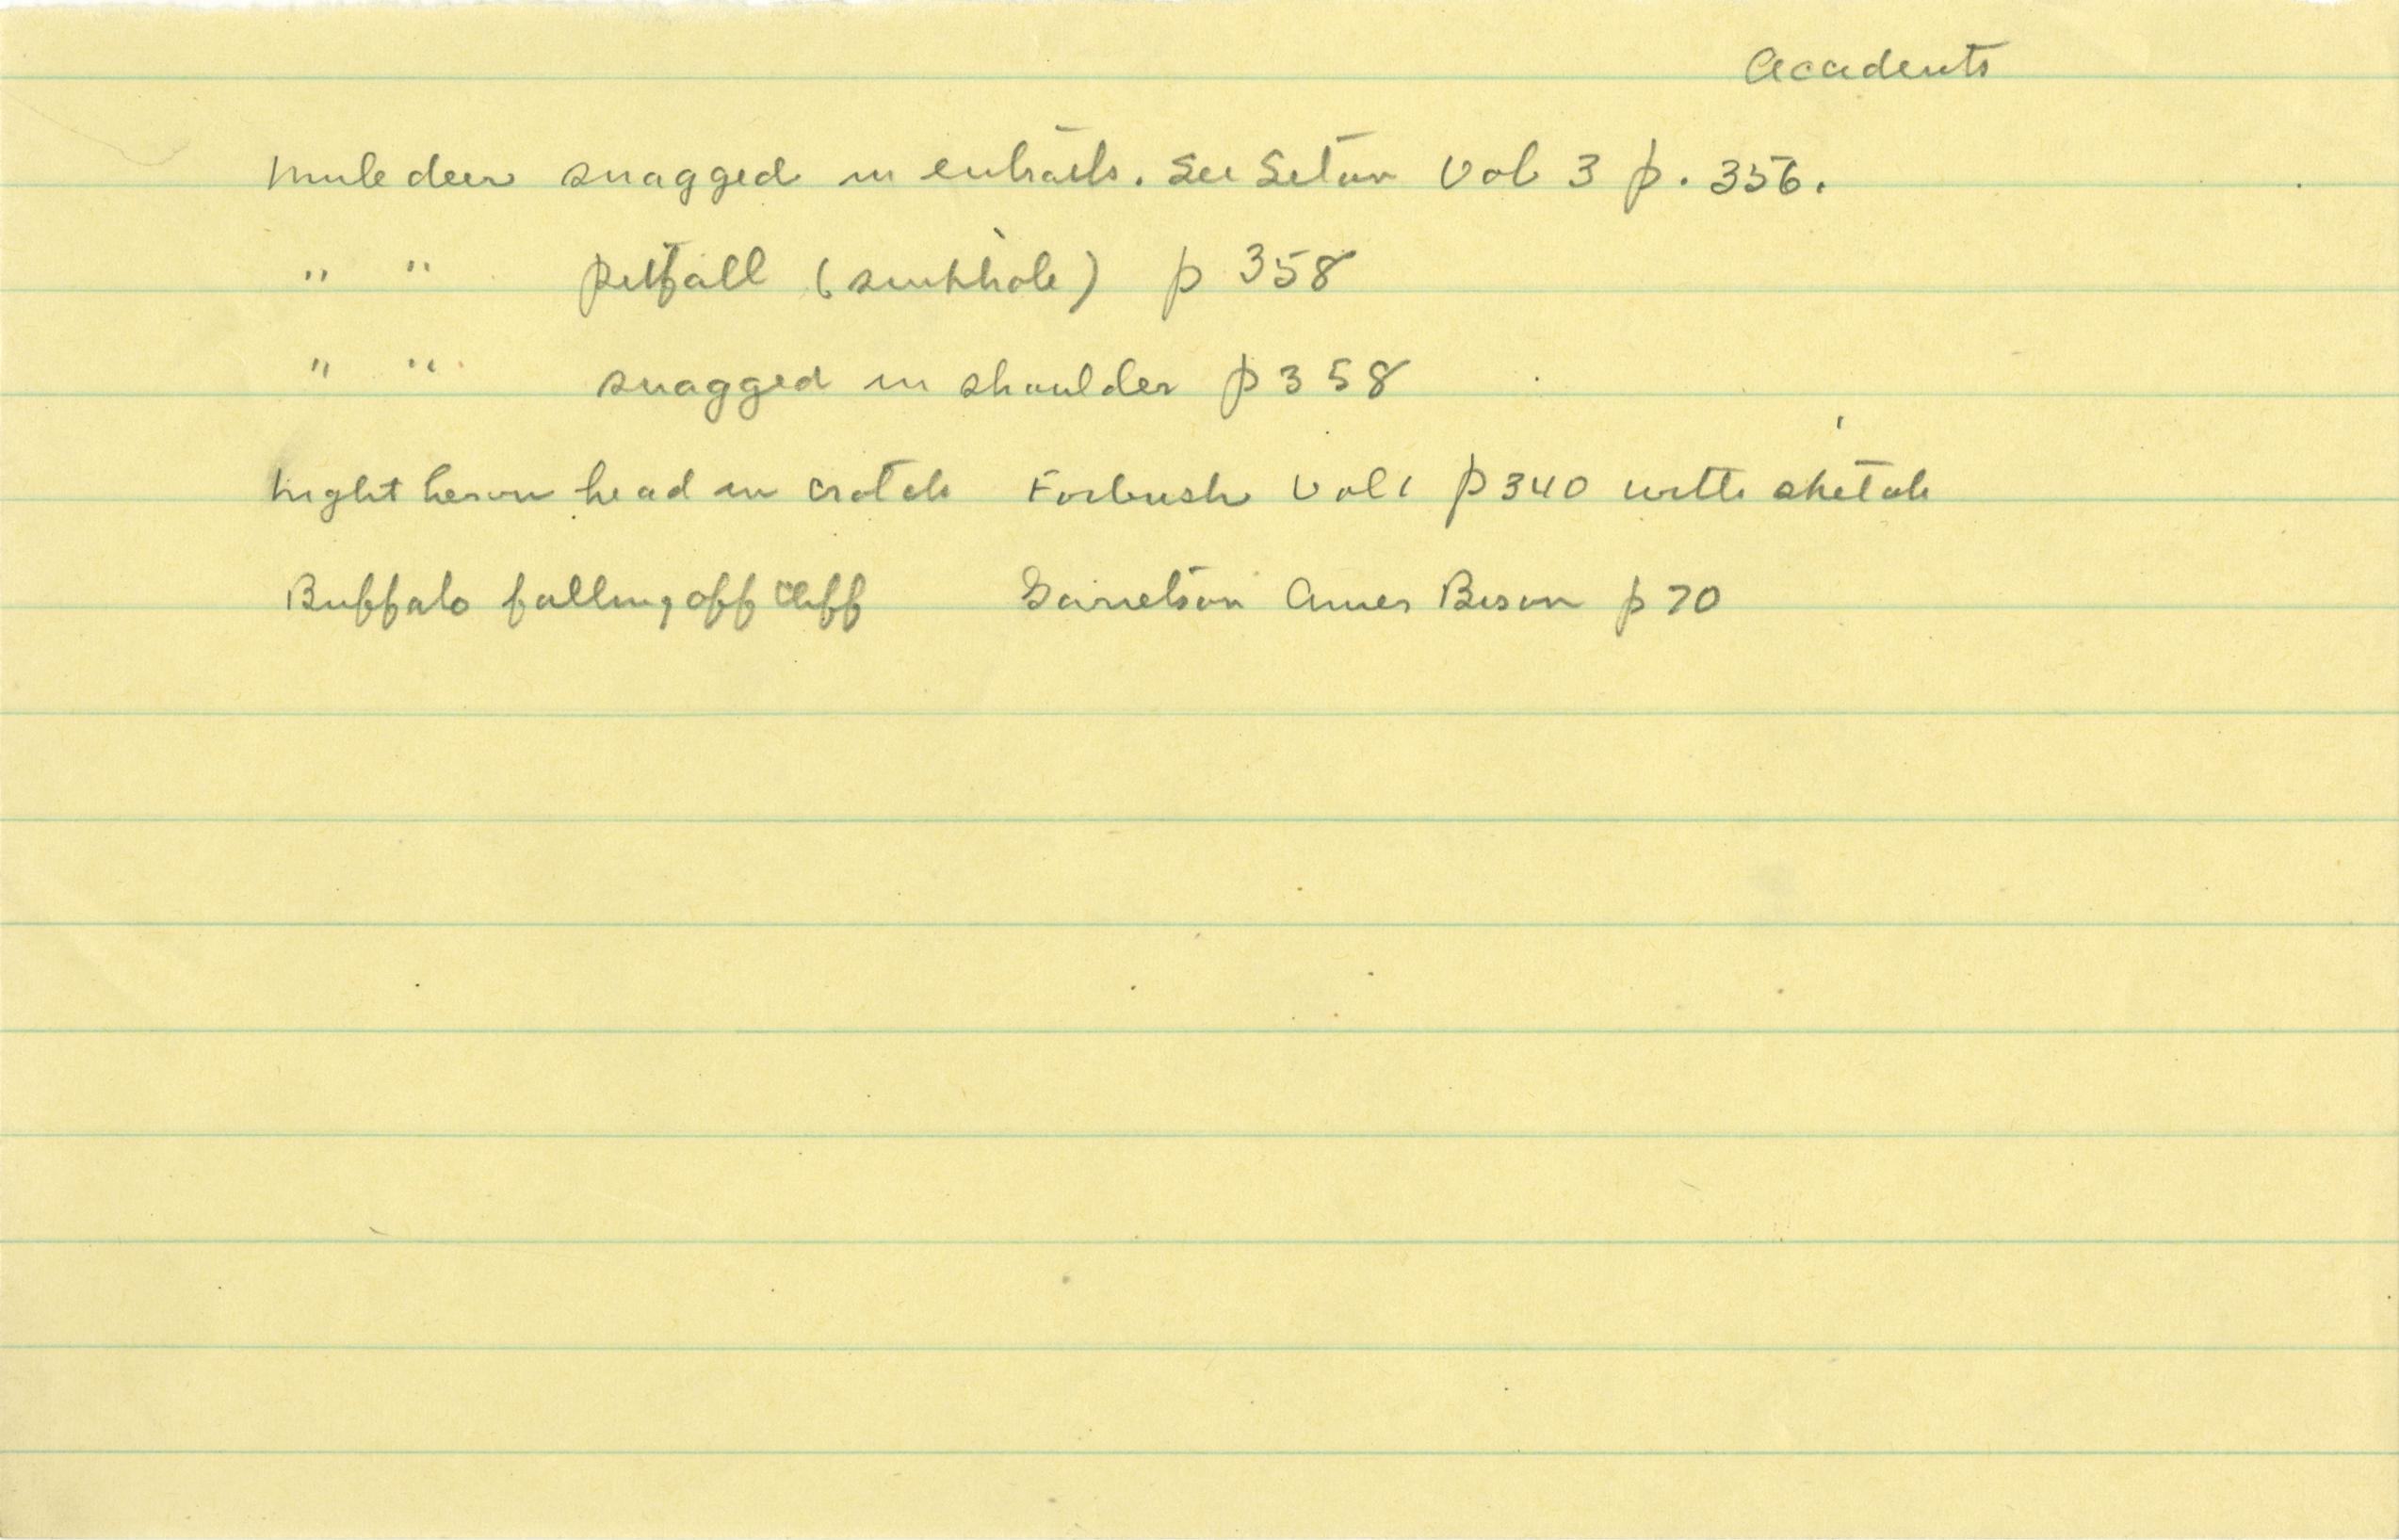 Accidents
Mule deer snagged in entrails. See Seton Vol 3 p. 356.
" " pitfall (sinkhole) p 358
" " snagged in shoulder p 358
Night heron head in crotch Forbush Vol 1 p 340 with sketch
Buffalo falling off cliff Garretson Amer Bison p 70